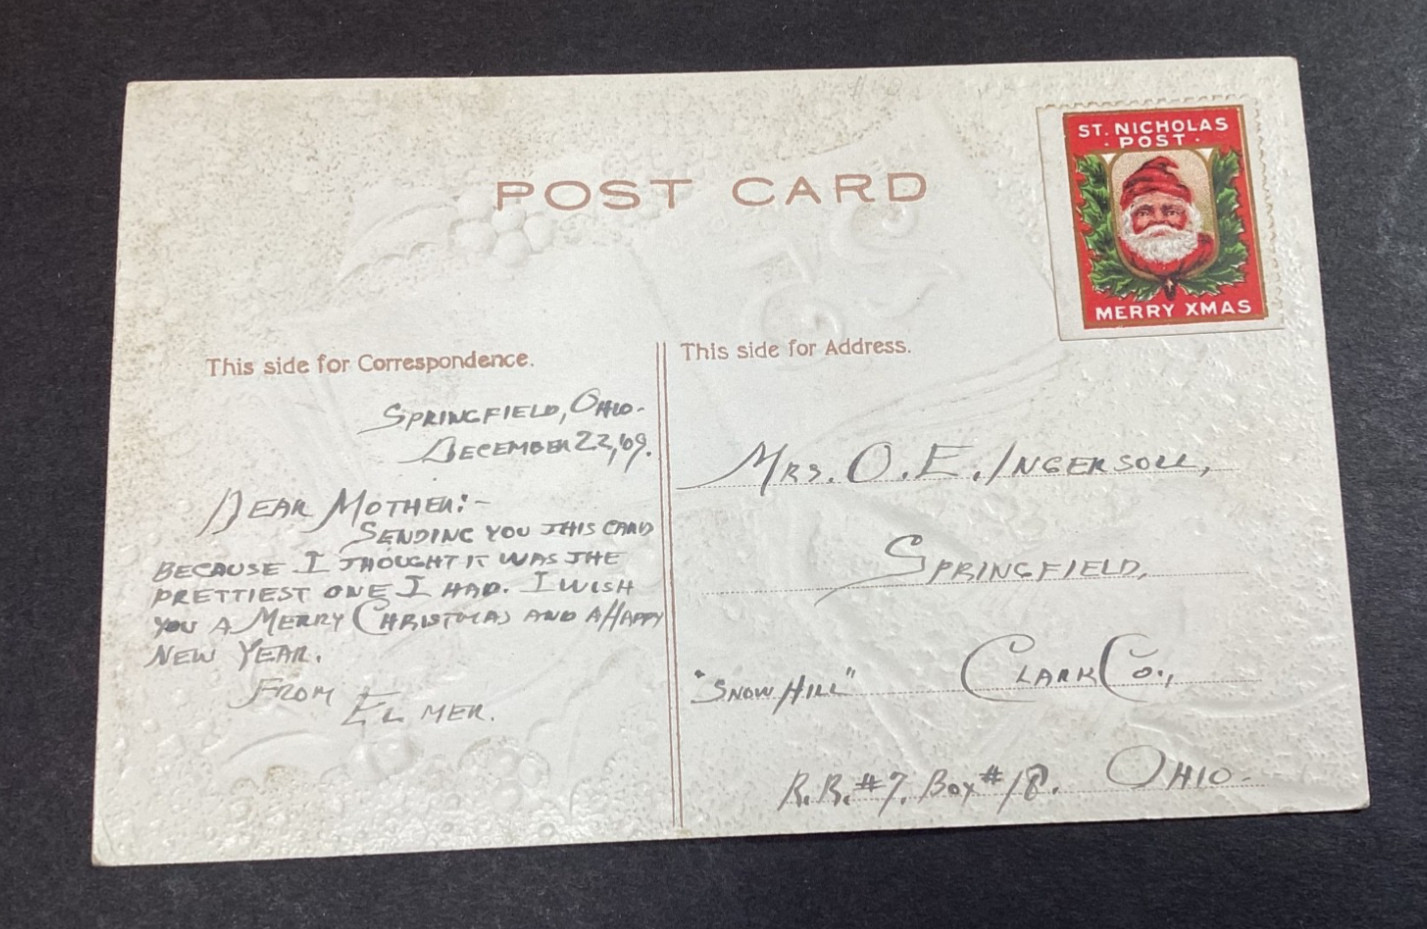 POST CARD
ST. NICHOLAS
· POST ·
MERRY XMAS
This side for Correspondence.
SPRINGFIELD, OHIO.
DECEMBER 22, '09.
DEAR MOTHER:-
SENDING YOU THIS CARD
BECAUSE I THOUGHT IT WAS THE
PRETTIEST ONE I HAD. I WISH
YOU A MERRY CHRISTMAS AND A HAPPY
NEW YEAR.
FROM
ELMER.
This side for Address.
MRS. O. E. INGERSOLL,
SPRINGFIELD,
"SNOW HILL" CLARK CO.,
R.R. #7. BOX #18. OHIO-